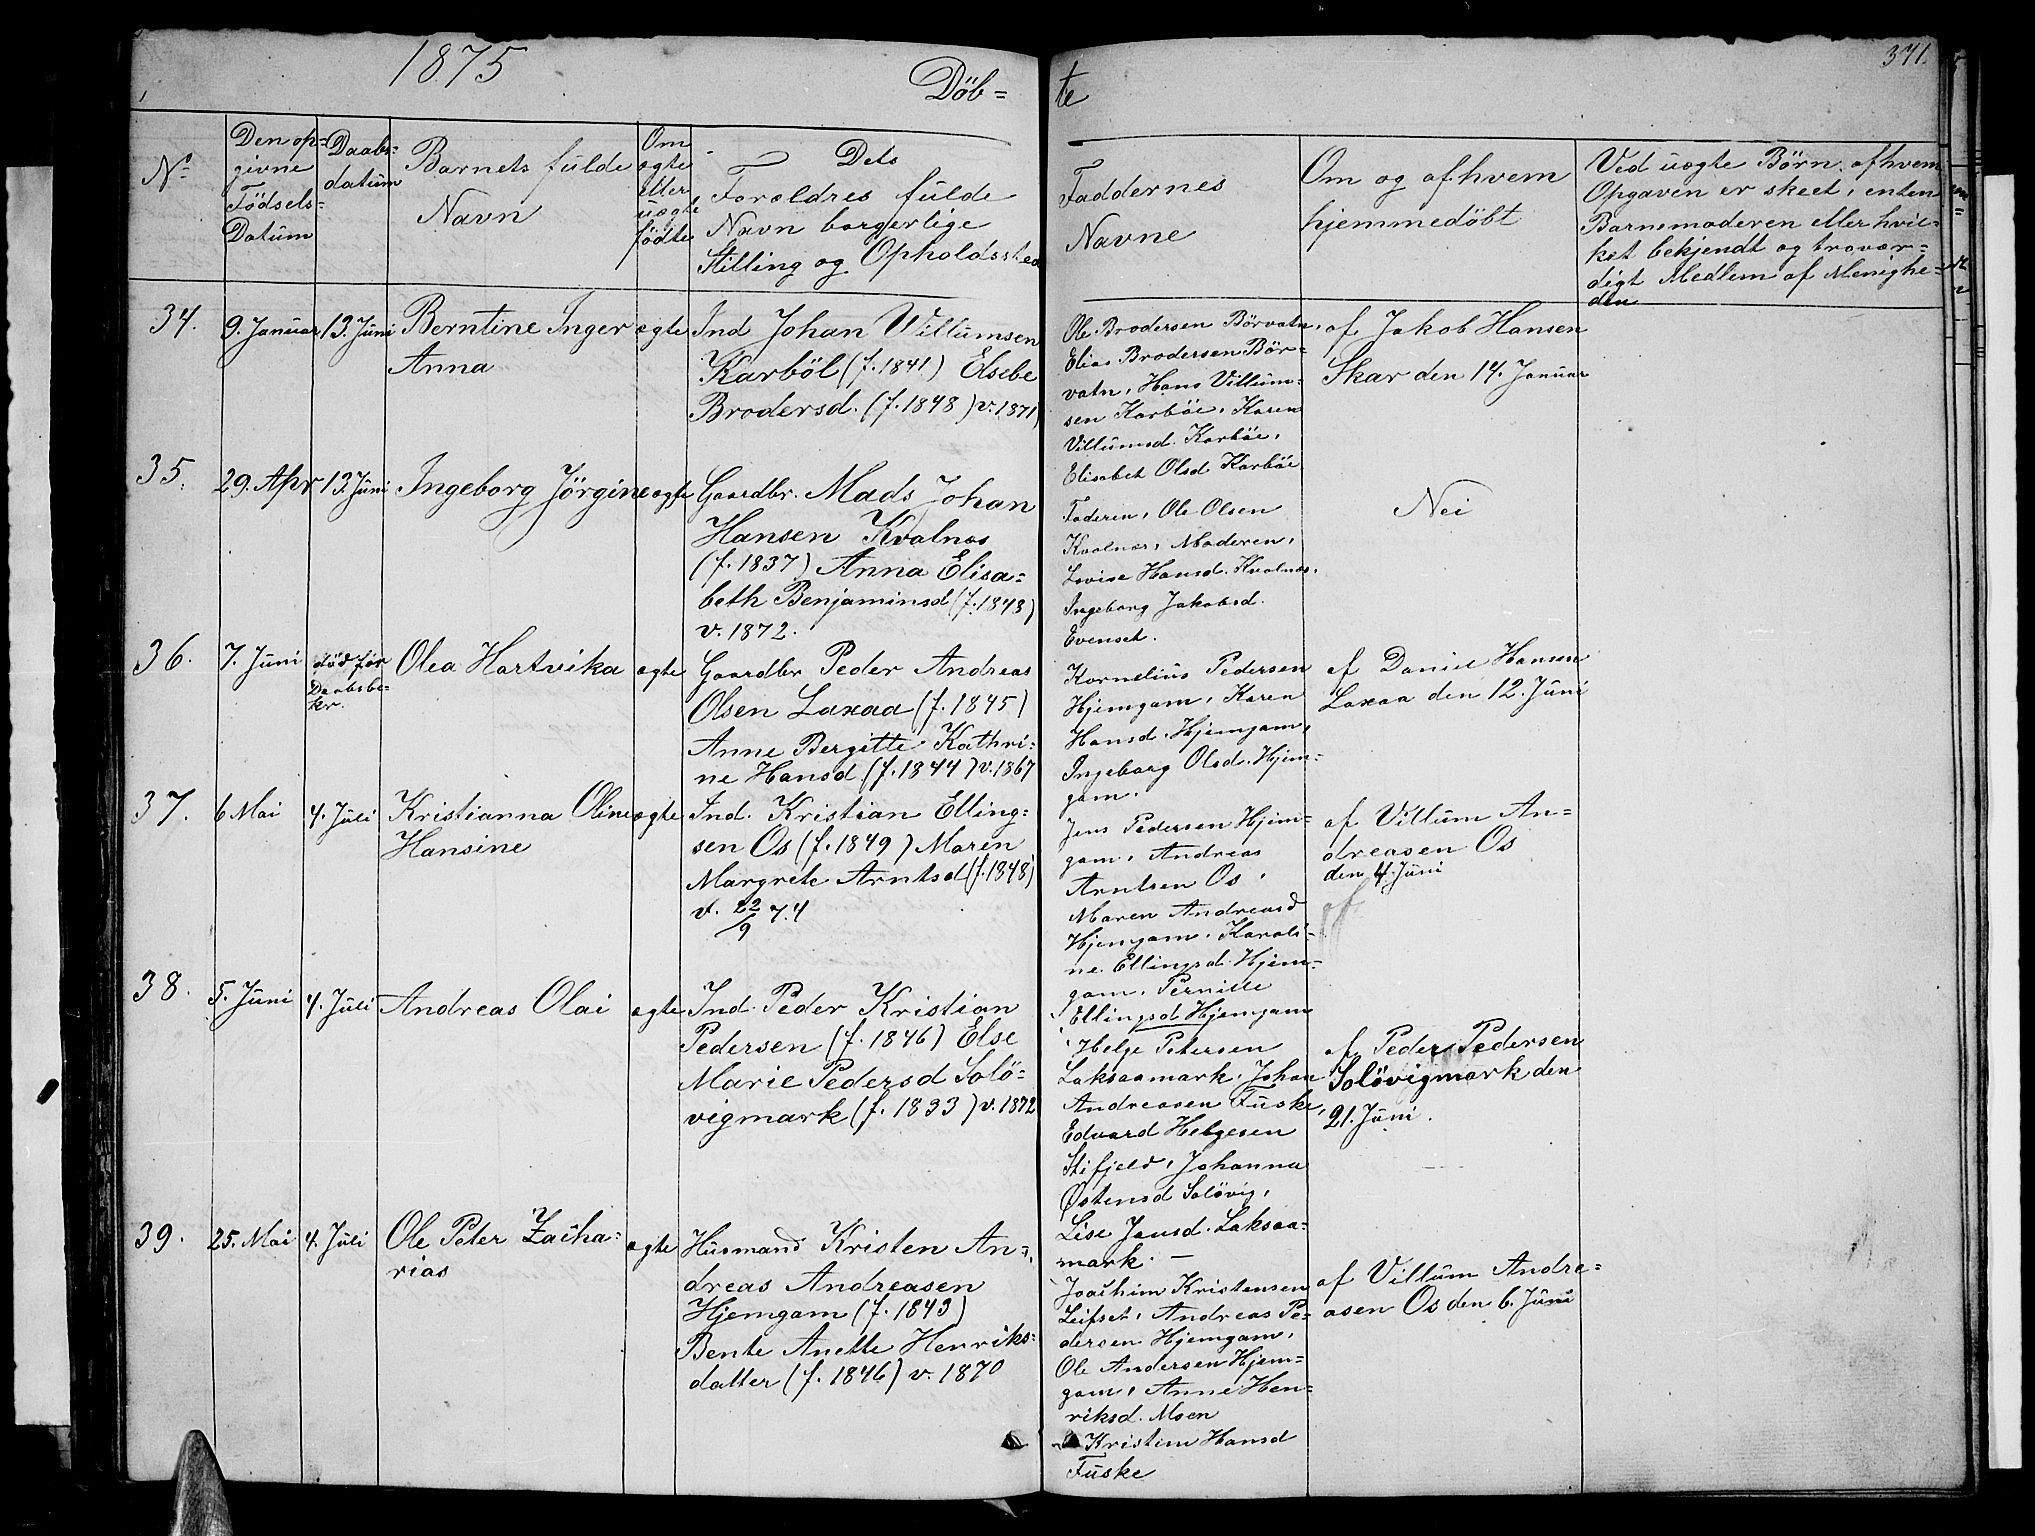 1875
Döb=
te
371.
No
Den op=
givne
Födsels=
Datum
Daabs=
datum
Barnets fulde
Navn
Om
ægte
eller
uægte
födte
Dets
Forældres fulde
Navn borgerlige
Stilling og Opholdssted
Faddernes
Navne
Om og af hvem
hjemmedöbt
Ved uægte Börn, af hvem
Opgaven er skeet, enten
Barnemoderen eller hvil=
ket bekjendt og trovær=
digt Medlem af Menighe=
den
34.
9. Januar
13. Juni
Berntine Inger
Anna
ægte
Ind Johan Willumsen
Karböl (f. 1841) Elsebe
Brodersd. (f. 1848) v. 1871)
Ole Brodersen Börvatn,
Elias Brodersen Bör=
vatn, Hans Villum=
sen Karböe, Karen
Villumsd. Karböe,
Elisabet Olsd Karböe
af Jakob Hansen
Skar den 14. Januar
35.
29. Apr
13. Juni
Ingeborg Jörgine
ægte
Gaardbr. Mads Johan
Hansen Kvalnæs
(f. 1837) Anna Elisa=
beth Benjaminsd (f. 1843)
v. 1872.
Faderen, Ole Olsen
Kvalnæs, Moderen,
Lovise Hansd. Kvalnæs,
Ingeborg Jakobsd.
Evenset.
Nei
36.
7. Juni
död för
Daabsbe=
kr.
Olea Hartvika
ægte
Gaardbr Peder Andreas
Olsen Laxaa (f. 1845)
Anne Bergitte Kathri=
ne Hansd. (f. 1844) v. 1867
Kornelius Pedersen
Hjemgam, Karen
Hansd. Hjemgam,
Ingeborg Olsd. Hjem=
gam.
af Daniel Hansen
Laxaa den 12. Juni
37.
6 Mai
4. Juli
Kristianna Oline
Hansine
ægte
Ind. Kristian Elling=
sen Os (f. 1849) Maren
Margrete Arntsd (f. 1848)
v. 22/9 74
Jens Pedersen Hjem=
gam, Andreas
Arntsen Os,
Maren Andreasd
Hjemgam, Karoli=
ne Ellingsd. Hjem=
gam, Pernille
Ellingsd Hjemgam
af Villum An=
dreasen Os
den 4. Juni
af
38.
5. Juni
4. Juli
Andreas Olai
ægte
Ind. Peder Kristian
Pedersen (f. 1846) Else
Marie Pedersd Solö=
vigmark (f. 1833) v. 1872
Helge Petersen
Laksaamark, Johan
Andreasen Fuske,
Edvard Helgesen
Stifjeld, Johanna
Østensd Solövig,
Lise Jensd. Laksaa=
mark. —
af Peder Pedersen
Solövigmark den
21. Juni.
39.
25. Mai
4. Juli
Ole Peter Zacha=
rias
ægte
Husmand Kristen An=
dreas Andreasen
Hjemgam (f. 1843)
Bente Anette Henriks=
datter (f. 1846) v. 1870
Joachim Kristensen
Leifset, Andreas Pe=
dersen Hjemgam,
Ole Andersen Hjem=
gam, Anne Hen=
riksd. Moen
Kristine Hansd
Fuske
af Villum Andre=
asen Os den 6. Juni